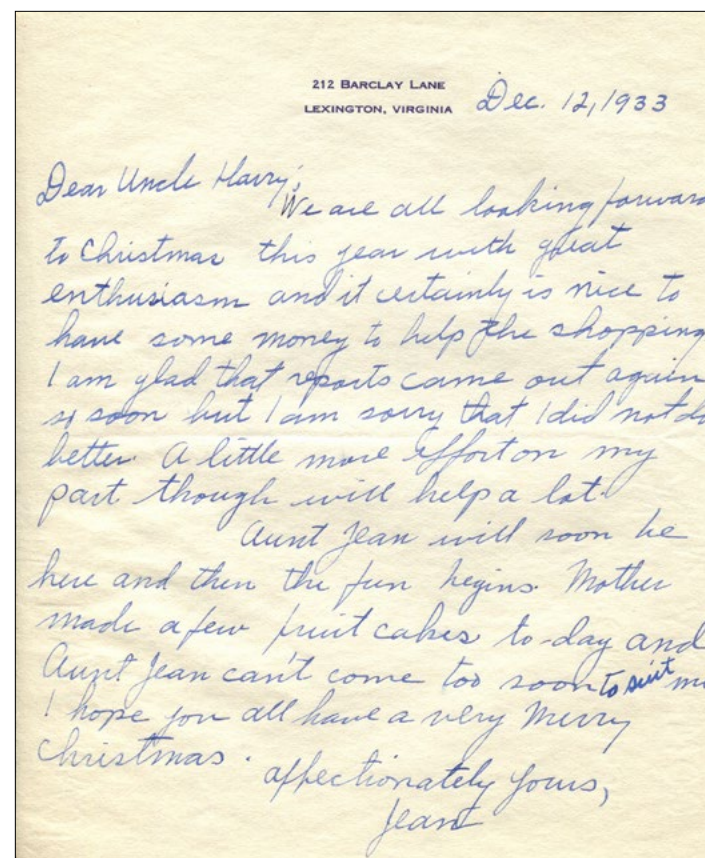 212 BARCLAY LANE
LEXINGTON, VIRGINIA
Dec. 12, 1933
Dear Uncle Harry,
We are all looking forward
to Christmas this year with great
enthusiasm and it certainly is nice to
have some money to help the shopping
I am glad that reports came out again
so soon but I am sorry that I did not do
better. A little more effort on my
part though will help a lot.
Aunt Jean will soon be
here and then the fun begins. Mother
made a few fruit cakes to-day and
Aunt Jean can't come too soon to suit me
I hope you all have a very Merry
Christmas.
affectionately yours,
Jean